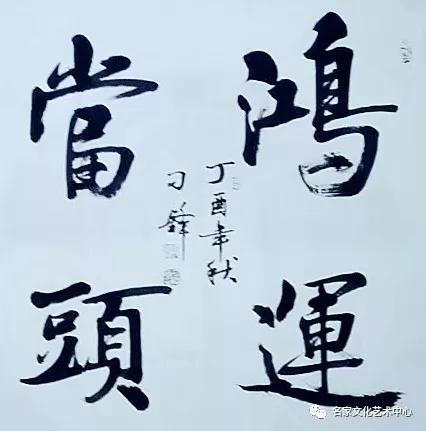 鴻運
當頭
丁酉年秋
刁鋒
名家文化艺术中心